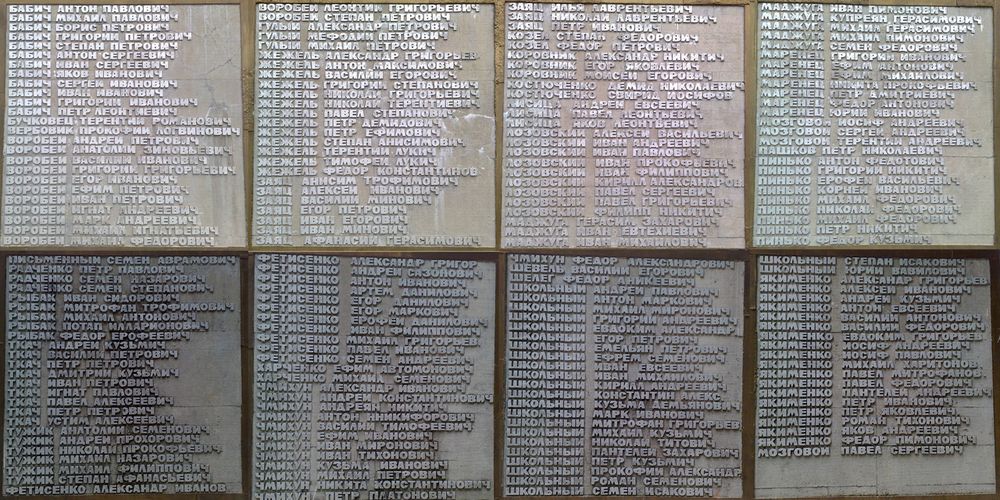 БАБИЧ АНТОН ПАВЛОВИЧ
БАБИЧ БОРИС ПЕТРОВИЧ
БАБИЧ ГРИГОРИЙ ПЕТРОВИЧ
БАБИЧ СТЕПАН ПЕТРОВИЧ
БАБИЧ АНТОН СЕРГЕЕВИЧ
БАБИЧ ИВАН СЕРГЕЕВИЧ
БАБИЧ ЯКОВ ИВАНОВИЧ
БАБИЧ СЕРГЕЙ ИВАНОВИЧ
БАБИЧ ИВАН ИВАНОВИЧ
БАБИЧ ГРИГОРИЙ ИВАНОВИЧ
БАБИЧ ПЕТР ЛЕОНТЬЕВИЧ
ТЕРЕНТИЙ РОМАНОВИЧ
ВЕРБОВИК ПРОКОФИЙ ЛОГВИНОВИЧ
ВОРОБЕЙ АНДРЕЙ ПЕТРОВИЧ
ВОРОБЕЙ АНАТОЛИЙ ЗИНОВЬЕВИЧ
ВОРОБЕЙ ВАСИЛИЙ ИВАНОВИЧ
ВОРОБЕЙ ГРИГОРИЙ ГРИГОРЬЕВИЧ
ВОРОБЕЙ ЕГОР ИВАНОВИЧ
ВОРОБЕЙ ЕФИМ ПЕТРОВИЧ
ВОРОБЕЙ ИГНАТ АНДРЕЕВИЧ
ВОРОБЕЙ МАРК АНДРЕЕВИЧ
ВОРОБЕЙ МИХАИЛ ИГНАТЬЕВИЧ
ВОРОБЕЙ МИХАИЛ ФЕДОРОВИЧ
ВОРОБЕЙ ЛЕОНТИЙ ГРИГОРЬЕВИЧ
ВОРОБЕЙ СТЕПАН ПЕТРОВИЧ
ГУЛЫЙ МЕФОДИЙ ПЕТРОВИЧ
ГУЛЫЙ МИХАИЛ ПЕТРОВИЧ
ЖЕЖЕЛЬ АЛЕКСАНДР ГРИГОРЬЕВ
ЖЕЖЕЛЬ АНТОН МАКСИМОВИЧ
ЖЕЖЕЛЬ ВАСИЛИЙ ЕГОРОВИЧ
ЖЕЖЕЛЬ ГРИГОРИЙ СТЕПАНОВИЧ
ЖЕЖЕЛЬ НИКОЛАЙ ГРИГОРЬЕВИЧ
ЖЕЖЕЛЬ НИКОЛАЙ ТЕРЕНТИЕВИЧ
ЖЕЖЕЛЬ ПАВЕЛ СТЕПАНОВИЧ
ЖЕЖЕЛЬ ПЕТР ДЕМИДОВИЧ
ЖЕЖЕЛЬ ПЕТР ЕФИМОВИЧ
ЖЕЖЕЛЬ СТЕПАН АНИСИМОВИЧ
ЖЕЖЕЛЬ ТЕРЕНТИЙ ЛУКИЧ
ЖЕЖЕЛЬ ТИМОФЕЙ ЛУКИЧ
ЖЕЖЕЛЬ ФЕДОР КОНСТАНТИНОВ
ЗАЯЦ АНИСИМ ТРОФИМОВИЧ
ЗАЯЦ АЛЕКСЕЙ ИВАНОВИЧ
ЗАЯЦ ВАСИЛИЙ МИНОВИЧ
ЗАЯЦ ЕГОР ПЕТРОВИЧ
ЗАЯЦ ИВАН ЕГОРОВИЧ
ЗАЯЦ ИВАН МИНОВИЧ
ЗАЯЦ АФАНАСИЙ ГЕРАСИМОВИЧ
ЗАЯЦ ИЛЬЯ ЛАВРЕНТЬЕВИЧ
ЗАЯЦ НИКОЛАЙ ЛАВРЕНТЬЕВИЧ
ЗАЯЦ ПЕТР ИВАНОВИЧ
КОЗЕЛ СТЕПАН ФЕДОРОВИЧ
КОЗЕЛ ФЕДОР ПЕТРОВИЧ
КОРОВНИК АЛЕКСАНДР НИКИТИЧ
КОРОВНИК ЕГОР ЯКОВЛЕВИЧ
КОРОВНИК МОИСЕЙ ЕГОРОВИЧ
КОСТЮЧЕНКО ДЕМИД НИКОЛАЕВИЧ
КОСТЮЧЕНКО СВИРИД ИОСИФОВ
ЛИСИЦА АНДРЕЙ ЕВСЕЕВИЧ
ЛИСИЦА ПАВЕЛ ЛЕОНТЬЕВИЧ
ЛИСИЦА ЯКОВ ЛЕОНТЬЕВИЧ
ЛОЗОВСКИЙ АЛЕКСЕЙ ВАСИЛЬЕВИЧ
ЛОЗОВСКИЙ ИВАН АНДРЕЕВИЧ
ЛОЗОВСКИЙ ИВАН ПАВЛОВИЧ
ЛОЗОВСКИЙ ИВАН ПРОКОФЬЕВИЧ
ЛОЗОВСКИЙ ИВАН ФИЛИППОВИЧ
ЛОЗОВСКИЙ КИРИЛЛ АЛЕКСАНДРОВ
ЛОЗОВСКИЙ ПАВЕЛ СЕРГЕЕВИЧ
ЛОЗОВСКИЙ ПАВЕЛ ГРИГОРЬЕВИЧ
ЛОЗОВСКИЙ ФИЛИПП НИКИТИЧ
МАДЖУГА ГЕРАСИМ ЗАХАРОВИЧ
МАДЖУГА ИВАН ЕВТЕХИЕВИЧ
МАДЖУГА ИВАН МИХАЙЛОВИЧ
МАДЖУГА ИВАН ПИМОНОВИЧ
МАДЖУГА КУПРЕЯН ГЕРАСИМОВИЧ
МАДЖУГА МИХАИЛ ГЕРАСИМОВИЧ
МАДЖУГА МИХАИЛ ПИМОНОВИЧ
МАДЖУГА СЕМЕН ФЕДОРОВИЧ
МАРЕНЕЦ ГРИГОРИЙ ИВАНОВИЧ
МАРЕНЕЦ ДЕМЬЯН АНТОНОВИЧ
МАРЕНЕЦ ЕФИМ МИХАЙЛОВИЧ
МАРЕНЕЦ НИКИТА ПРОКОФЬЕВИЧ
МАРЕНЕЦ ПЕТР ДМИТРИЕВИЧ
МАРЕНЕЦ ФЕДОР АНТОНОВИЧ
МАРЕНЕЦ ЮРИЙ ИВАНОВИЧ
МОЗГОВОЙ ИОСИФ АНДРЕЕВИЧ
МОЗГОВОЙ СЕРГЕЙ АНДРЕЕВИЧ
МОЗГОВОЙ ТЕРЕНТИЙ АНДРЕЕВИЧ
ПАШКО ПЕТР НИКОЛАЕВИЧ
ПИНЬКО АНТОН ФЕДОТОВИЧ
ПИНЬКО ГРИГОРИЙ НИКИТИЧ
ПИНЬКО ЕРОФЕЙ ВАСИЛЬЕВИЧ
ПИНЬКО КОРНЕЙ ИВАНОВИЧ
ПИНЬКО МИХАИЛ ФЕДОРОВИЧ
ПИНЬКО НИКОЛАЙ ФЕДОРОВИЧ
ПИНЬКО ПЕТР ИВАНОВИЧ
ПИНЬКО ПЕТР НИКИТИЧ
ПИНЬКО ФЕДОР КУЗЬМИЧ
ПИСЬМЕННЫЙ СЕМЕН АВРАМОВИЧ
РАДЧЕНКО ПЕТР ПАВЛОВИЧ
РАДЧЕНКО СЕМЕН НАЗАРОВИЧ
РАДЧЕНКО СЕМЕН СТЕПАНОВИЧ
РЫБАК ИВАН СИДОРОВИЧ
РЫБАК МИТРОФАН ТРОФИМОВИЧ
РЫБАК МИХАИЛ АНТОНОВИЧ
РЫБАК ПОТАП ИЛЛАРИОНОВИЧ
РЫБАК ФЕДОР ЕРОФЕЕВИЧ
ТКАЧ АНДРЕЙ КУЗЬМИЧ
ТКАЧ ВАСИЛИЙ ПЕТРОВИЧ
ТКАЧ ПЕТР ПЕТРОВИЧ
ТКАЧ ДМИТРИЙ КУЗЬМИЧ
ТКАЧ ИВАН ПЕТРОВИЧ
ТКАЧ ИГНАТ ПАВЛОВИЧ
ТКАЧ ПАВЕЛ АЛЕКСЕЕВИЧ
ТКАЧ ПЕТР ПЕТРОВИЧ
ТКАЧ УСТИМ АЛЕКСЕЕВИЧ
ТУЖИК АНАТОЛИЙ СЕМЕНОВИЧ
ТУЖИК АНДРЕЙ ПРОХОРОВИЧ
ТУЖИК НИКОЛАЙ ПРОКОФЬЕВИЧ
ТУЖИК МИХАИЛ НАЗАРОВИЧ
ТУЖИК МИХАИЛ ФИЛИППОВИЧ
ТУЖИК СТЕПАН АФАНАСЬЕВИЧ
ФЕТИСЕНКО АЛЕКСАНДР ИВАНОВ
ФЕТИСЕНКО АЛЕКСАНДР ГРИГ
ФЕТИСЕНКО АНДРЕЙ САЗОНОВИЧ
ФЕТИСЕНКО АНТОН ИВАНОВИЧ
ФЕТИСЕНКО АРТЕМ ДАНИЛОВИЧ
ФЕТИСЕНКО ЕГОР ДАНИЛОВИЧ
ФЕТИСЕНКО ЕРОФЕЙ ДАНИЛОВИЧ
ФЕТИСЕНКО ИВАН ФИЛИППОВИЧ
ФЕТИСЕНКО МИХАИЛ ГРИГОРЬЕВ
ФЕТИСЕНКО ПАВЕЛ ИВАНОВИЧ
ФЕТИСЕНКО СЕМЕН АНДРЕЕВИЧ
ХАРЧЕНКО ЕФИМ АВТОМОНОВИЧ
ХАРЧЕНКО МИХАИЛ СЕМЕНОВИЧ
ЧМИХУН АЛЕКСАНДР ИВАНОВИЧ
ЧМИХУН АНДРЕЙ КОНСТАНТИНОВИЧ
ЧМИХУН АНДРЕЙ НИКИТИЧ
ЧМИХУН АНТОН НИКИФОРОВИЧ
ЧМИХУН ВАСИЛИЙ ТИМОФЕЕВИЧ
ЧМИХУН ЕФИМ ИВАНОВИЧ
ЧМИХУН ИВАН МИРОНОВИЧ
ЧМИХУН ИВАН ТИХОНОВИЧ
ЧМИХУН КУЗЬМА ИВАНОВИЧ
ЧМИХУН МИХАИЛ ПЕТРОВИЧ
ЧМИХУН НИКИТА КОНСТАНТИНОВИЧ
ЧМИХУН ПЕТР ПЛАТОНОВИЧ
ЧМИХУН ФЕДОР АЛЕКСАНДРОВИЧ
ШЕВЕЛЬ ВАСИЛИЙ ЕГОРОВИЧ
ШЕЛЕГ ФЕДОР АЛЕКСЕЕВИЧ
ШКОЛЬНЫЙ АНДРЕЙ ИВАНОВИЧ
ШКОЛЬНЫЙ АНТОН МАРКОВИЧ
ШКОЛЬНЫЙ АНТОН МИРОНОВИЧ
ШКОЛЬНЫЙ ГРИГОРИЙ АНДРЕЕВИЧ
ШКОЛЬНЫЙ ЕВДОКИМ АЛЕКСАНДР
ШКОЛЬНЫЙ ЕГОР ПЕТРОВИЧ
ШКОЛЬНЫЙ ЕМЕЛЬЯН ПЕТРОВИЧ
ШКОЛЬНЫЙ ЕФРЕМ СЕМЕНОВИЧ
ШКОЛЬНЫЙ ИВАН МИХЕЕВИЧ
ШКОЛЬНЫЙ КИРИЛЛ АНДРЕЕВИЧ
ШКОЛЬНЫЙ КОНСТАНТИН АЛЕКС
ШКОЛЬНЫЙ КУЗЬМА ДЕМЬЯНОВИЧ
ШКОЛЬНЫЙ МАРК ИВАНОВИЧ
ШКОЛЬНЫЙ МИТРОФАН ГРИГОРЬЕВ
ШКОЛЬНЫЙ МИХАИЛ КУЗЬМИЧ
ШКОЛЬНЫЙ НИКОЛАЙ ТИТОВИЧ
ШКОЛЬНЫЙ ПАНТЕЛЕЙ ЗАХАРОВИЧ
ШКОЛЬНЫЙ ПЕТР КУЗЬМИЧ
ШКОЛЬНЫЙ ПРОКОФИЙ АЛЕКСАНДР
ШКОЛЬНЫЙ РОМАН СЕМЕНОВИЧ
ШКОЛЬНЫЙ СЕМЕН ИСАКОВИЧ
ШКОЛЬНЫЙ СТЕПАН ИСАКОВИЧ
ШКОЛЬНЫЙ ЮРИЙ ВАВИЛОВИЧ
ЯКИМЕНКО АЛЕКСАНДР ГРИГОРЬЕВ
ЯКИМЕНКО АЛЕКСЕЙ ИВАНОВИЧ
ЯКИМЕНКО АНДРЕЙ КУЗЬМИЧ
ЯКИМЕНКО АНТОН ЕВСЕЕВИЧ
ЯКИМЕНКО ВАСИЛИЙ ПЕТРОВИЧ
ЯКИМЕНКО ВАСИЛИЙ ФЕДОРОВИЧ
ЯКИМЕНКО ЕВДОКИМ ГРИГОРЬЕВ
ЯКИМЕНКО ИОСИФ ФЕДОРОВИЧ
ЯКИМЕНКО ИОСИФ ПАВЛОВИЧ
ЯКИМЕНКО МИХАИЛ ХАРИТОНОВ
ЯКИМЕНКО ПАВЕЛ МИТРОФАНОВ
ЯКИМЕНКО ПАВЕЛ ФЕДОРОВИЧ
ЯКИМЕНКО ПАНТЕЛЕЙ АНДРЕЕВИЧ
ЯКИМЕНКО ПЕТР ИВАНОВИЧ
ЯКИМЕНКО ПЕТР ЯКОВЛЕВИЧ
ЯКИМЕНКО РОМАН ТИХОНОВИЧ
ЯКИМЕНКО ЯКОВ АНДРЕЕВИЧ
ЯКИМЕНКО ФЕДОР ПИМОНОВИЧ
МОЗГОВОЙ ПАВЕЛ СЕРГЕЕВИЧ